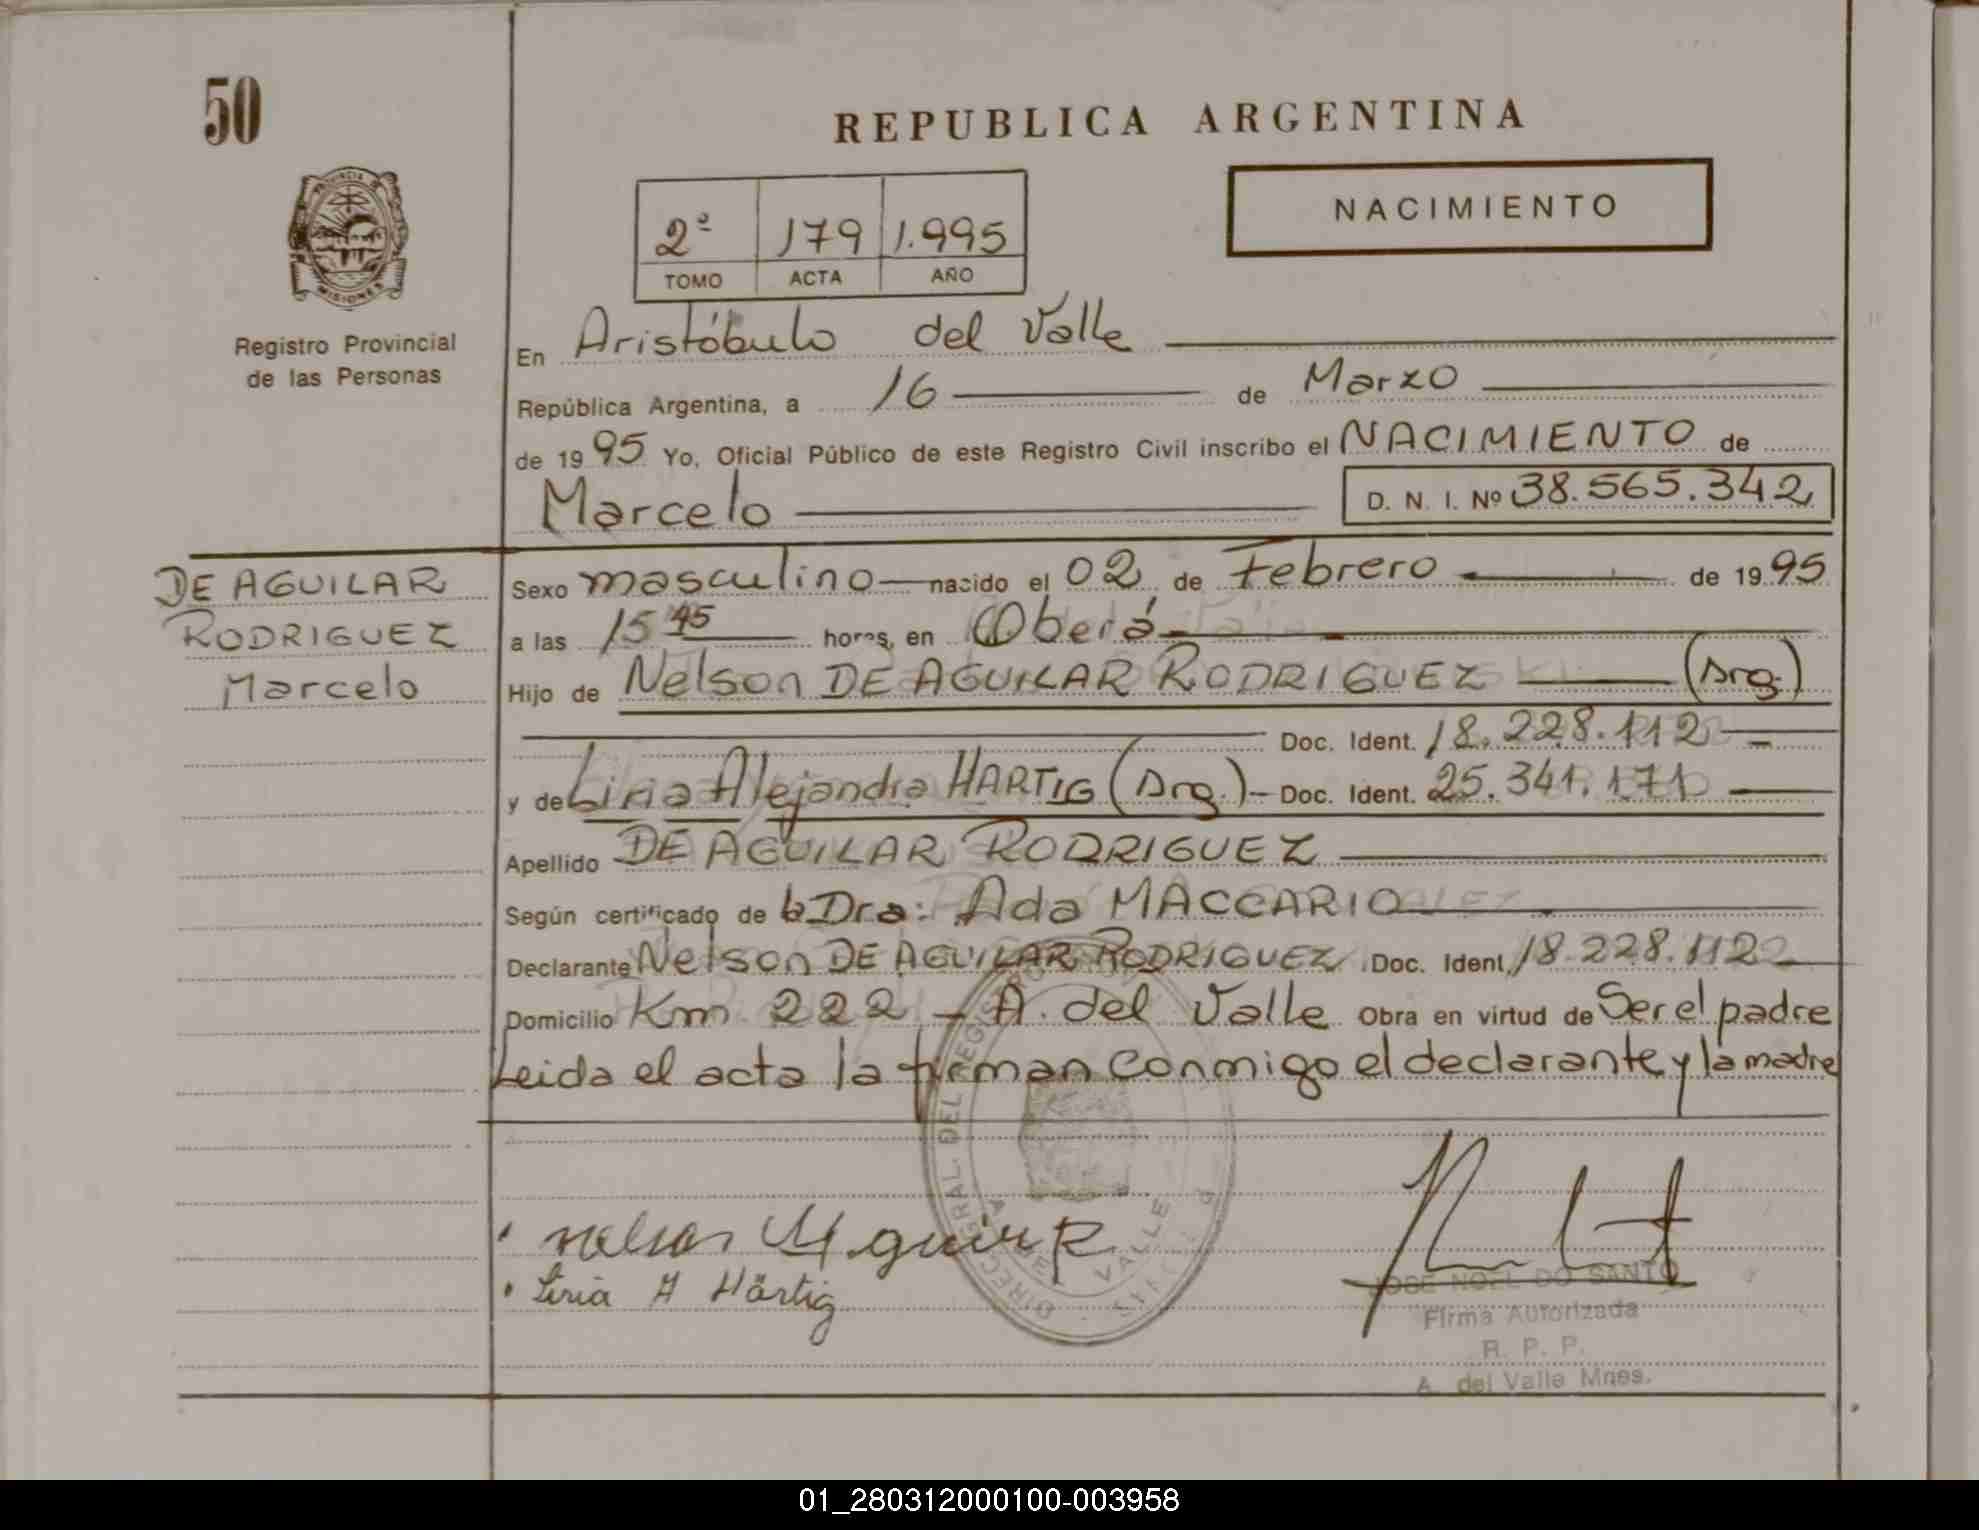 50
REPUBLICA ARGENTINA
NACIMIENTO
2º 179 1.995
TOMO ACTA AÑO
PROVINCIA DE
MISIONES
Registro Provincial
de las Personas
En Aristóbulo del Valle
República Argentina, a 16 de Marzo
de 1995 Yo, Oficial Público de este Registro Civil inscribo el NACIMIENTO de
Marcelo D. N. I. Nº 38.565.342
DE AGUILAR
RODRIGUEZ
Marcelo
Sexo masculino nacido el 02 de Febrero de 1995
a las 15 45 horas, en Oberá
Hijo de Nelson DE AGUILAR RODRIGUEZ (Arg.)
Doc. Ident. 18.228.112
y de Liria Alejandra HARTIG (Arg.) Doc. Ident. 25.341.171
Apellido DE AGUILAR RODRIGUEZ
Según certificado de la Dra: Ada MACCARIO
Declarante Nelson DE AGUILAR RODRIGUEZ Doc. Ident. 18.228.112
Domicilio Km 222 - A. del Valle Obra en virtud de Ser el padre
Leida el acta la firman conmigo el declarante y la madre
DIREC. GRAL. DEL REGISTRO
VALLE
Nelson
Liria A Härtig
JOSE NOEL DO SANTO
Firma Autorizada
R. P. P.
A. del Valle Mnes.
01_280312000100-003958